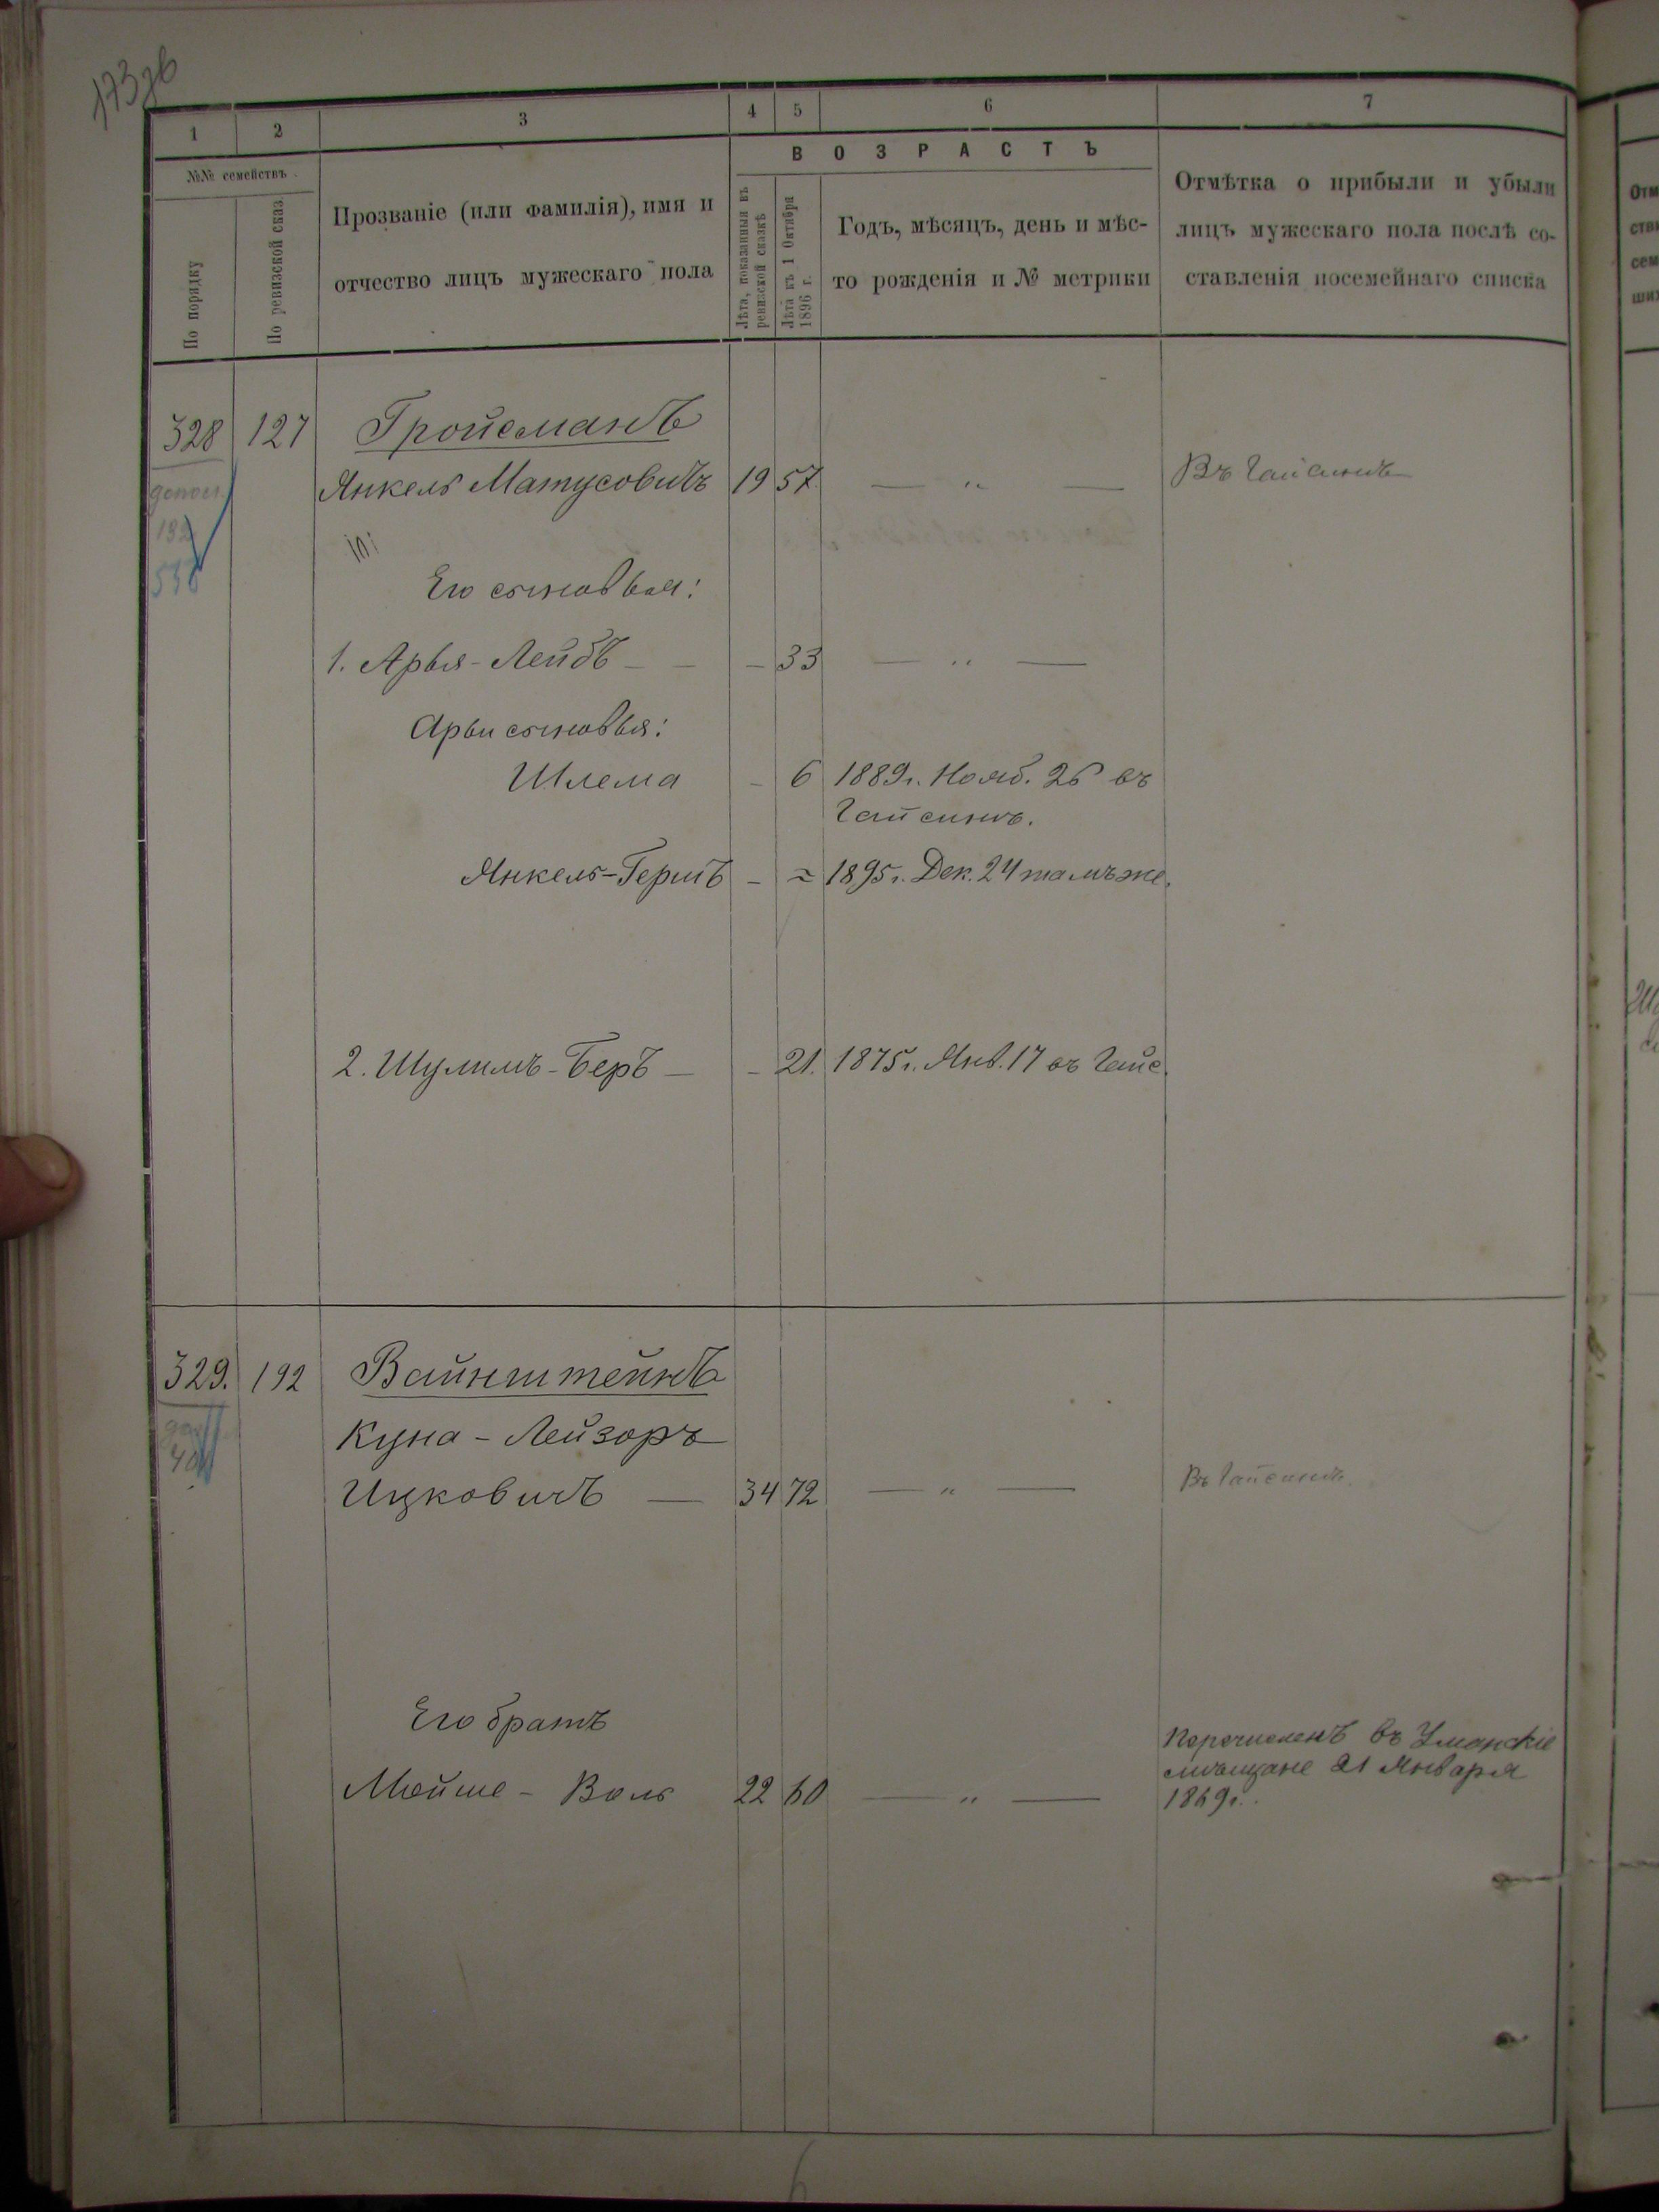 173 зв
1 2 3 4 5 6 7
№№ семействъ
По порядку
По ревизской сказ.
Прозваніе (или фамилія), имя и
отчество лицъ мужескаго пола
ВОЗРАСТЪ
Лѣта, показанныя въ
ревизской сказкѣ
Лѣта къ 1 Октября
1896 г.
Годъ, мѣсяцъ, день и мѣс-
то рожденія и № метрики
Отмѣтка о прибыли и убыли
лицъ мужескаго пола послѣ со-
ставленія посемейнаго списка
328 127 Гройсманъ
Янкель Матусовичъ 19 57 — „ — Въ Гайсинѣ
Его сыновья:
1. Арья-Лейбъ — — — 33 — „ —
Арьи сыновья:
Шлема — 6 1889 г. Нояб. 26 въ
Гайсинѣ.
Янкель-Гершъ — = 1895 г. Дек. 24 тамъ же.
2. Шулимъ-Беръ — — 21. 1875 г. Янв. 17 въ Гайс.
329. 192 Вайнштейнъ
Куна - Лейзоръ
Ицковичъ — 34 72 — „ — Въ Гайсинѣ.
Его братъ
Мойше - Воль 22 60 — „ —
Перечисленъ въ Уманскіе
мѣщане 21 Января
1869 г.